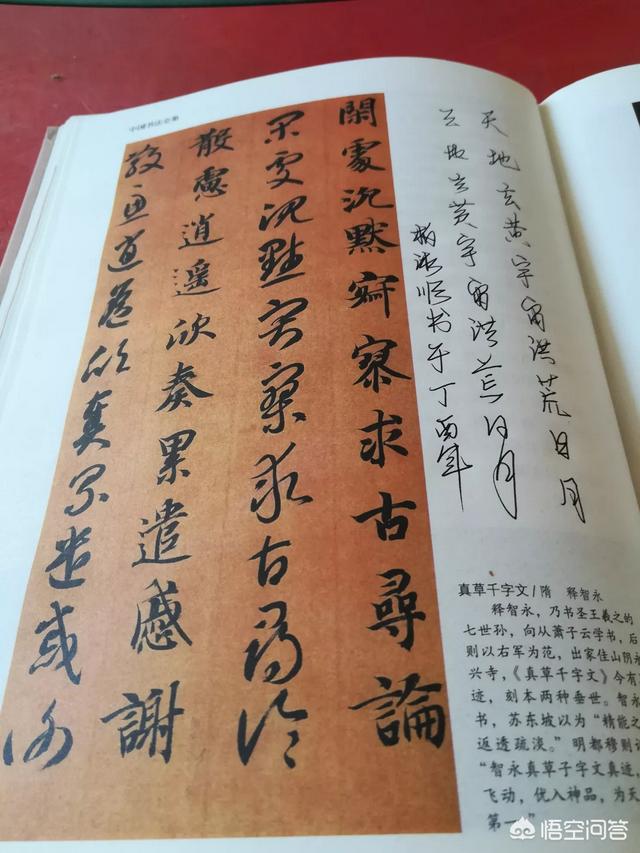 天地玄黄宇宙洪荒日月
天地玄黄宇宙洪荒日月
顺书于丁酉年
閑處沉默寂寥求古尋論
閑處沉默寂寥求古尋論
散慮逍遥欣奏累遣慼謝
散慮逍遥欣奏累遣慼謝
真草千字文/隋 释智永
释智永，乃书圣王羲之的
七世孙，向从萧子云学书，后
则以右军为范，出家佳山阴永
兴寺，《真草千字文》今有
迹，刻本两种垂世。智永
书，苏东坡以为“精能之
返透疏淡。”明都穆则
“智永真草千字文真迹，
飞动，优入神品，为天
第一”
悟空问答